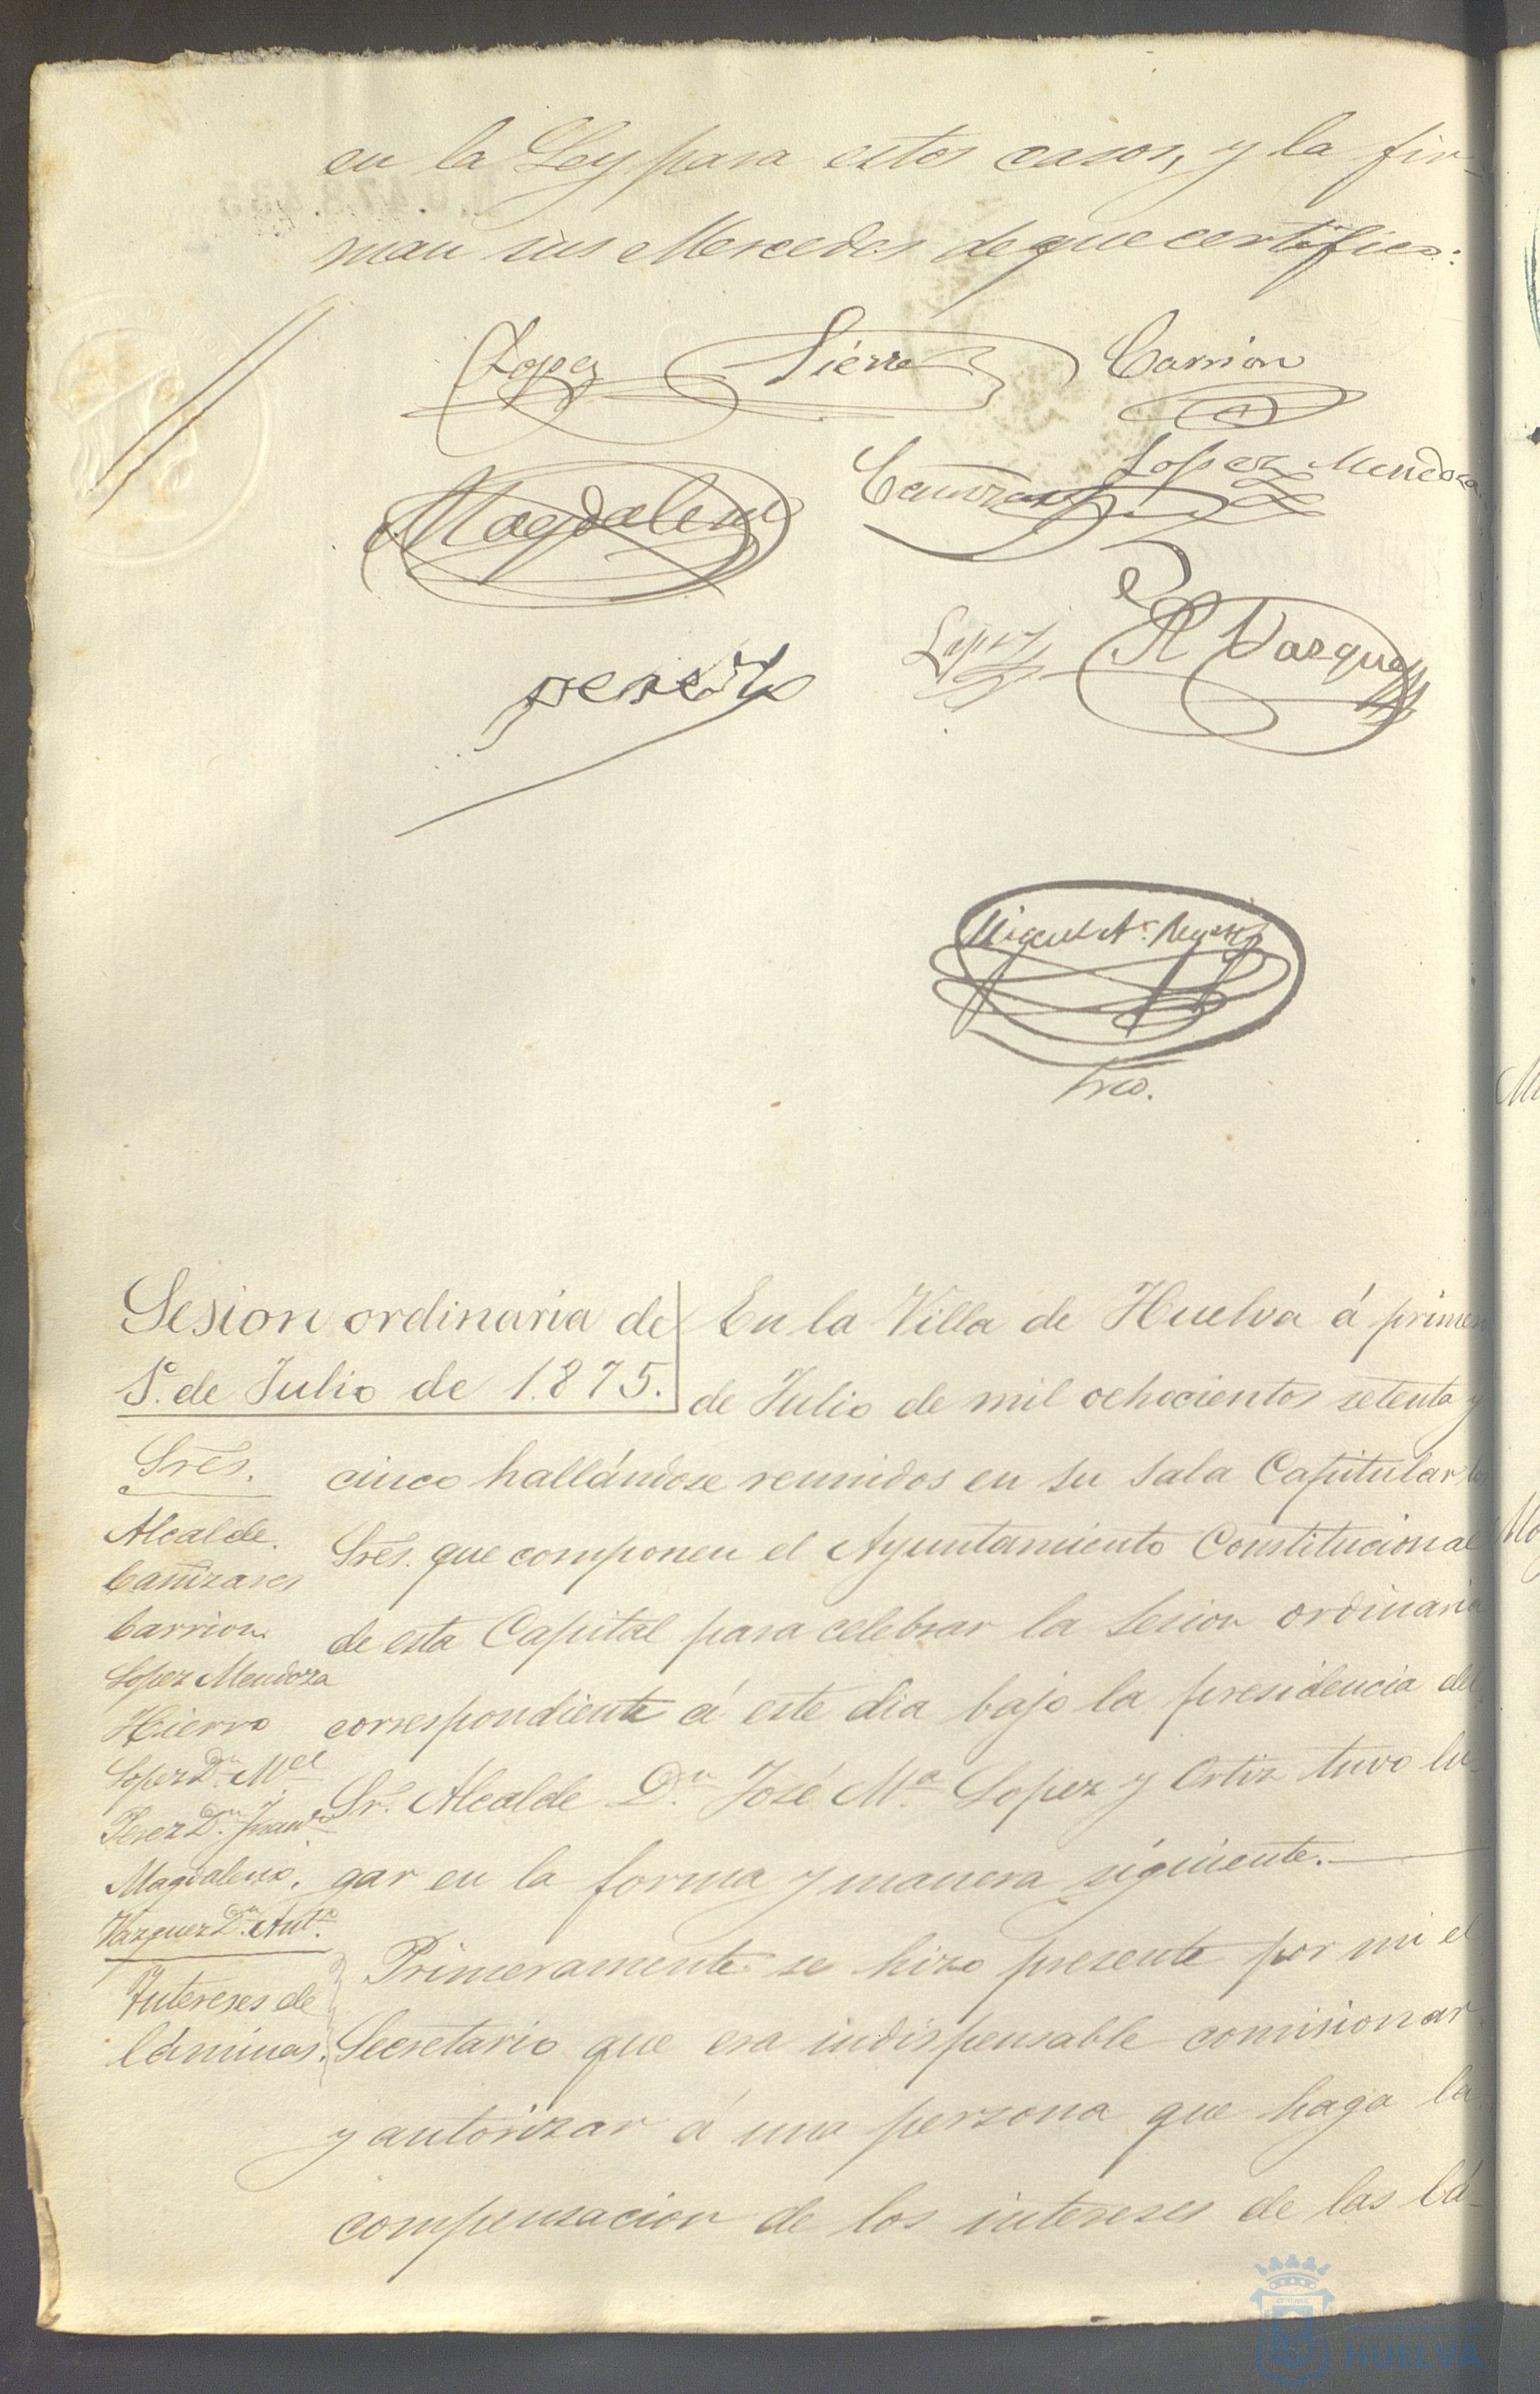 en la Ley para estos casos, y la fir-
man sus Mercedes de que certifico:
Lopez Hierro Carrion
Magdalena Cañizares Lopez Mendoza
perez Lopez A Vazquez
Miguel
Srio.
Sesion ordinaria de
1º. de Julio de 1875.
En la Villa de Huelva á primero
de Julio de mil ochocientos setenta y
cinco hallándose reunidos en su Sala Capitular los
Sres. que componen el Ayuntamiento Constitucional
de esta Capital para celebrar la Sesion ordinaria
correspondiente á este dia bajo la presidencia del
Sr. Alcalde Dn. José Ma. Lopez y Ortiz tuvo lu-
gar en la forma y manera siguiente.
Sres.
Alcalde.
Cañizares
Carrion
Lopez Mendoza
Hierro
Lopez Dn. Mel
Perez Dn. Juan
Magdalena.
Vazquez Dn. Anto.
Intereses de
láminas.
Primeramente se hizo presente por mi el
Secretario que era indispensable comisionar
y autorizar á una persona que haga la
compensacion de los intereses de las lá-
HUELVA